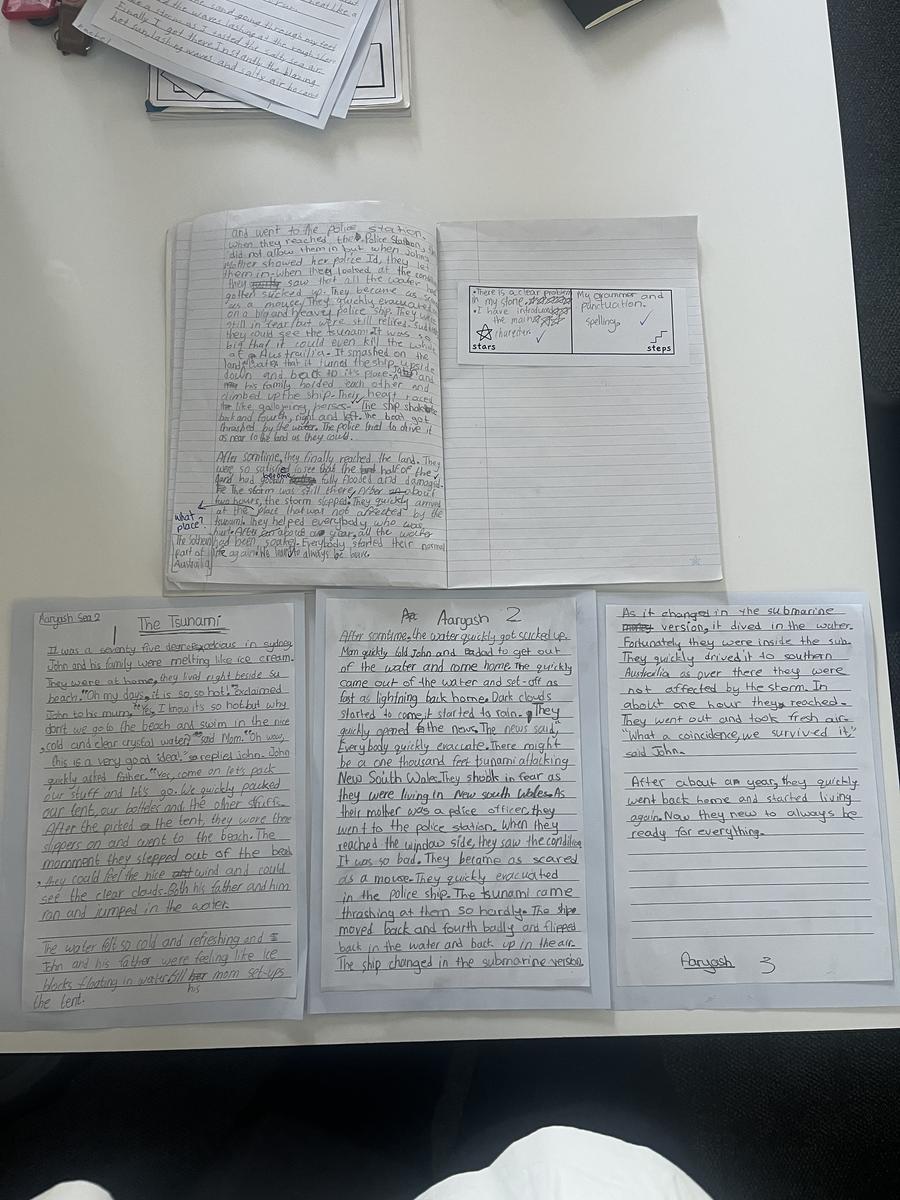 the sand going through my feet
the waves lashing at the rough shore
like a storm as I tasted the salty sea air.
Finally I get there Instantly the blazing
hot sun, lashing waves and salty air became
and went to the police station.
When they reached the Police Station,
did not allow them in but when John's
Mother showed her police Id, they let
them in. when they looked at the
they saw that all the water
gotten sucked up. They became as
as a mouse. They quickly evacuated
on a big and heavy police ship. They were
still in fear but were still relived.
they could see the tsunami. It was so
big that it could even kill the whole
of Austrailia. It smashed on the
land/water that it turned the ship upside
down and back to it's place. John and
his family holded each other and
climbed up the ship. Their heart raced
like galloping horses. The ship shook
back and fourth, right and left. the boat got
thrashed by the water. The police tried to drive it
as near to the land as they could.
After somtime, they finally reached the land. They
were so satisfied to see that the half of the
land had become fully flooded and damaged
The storm was still there, After about
two hours, the storm stopped. They quickly arrived
at the place that was not affected by the
tsunami. They helped everybody who was
hurt. After about a year, all the water
had been soaked. Everybody started their normal
life again. We learn to always be brave.
what
place?
The Sothern
part of
Australia
• There is a clear problem
in my stone.
• I have introduced
the main
charecter.
stars
My grammer and
punctuation.
spelling.
steps
Aaryash Sea 2
1 The Tsunami
It was a seventy five degrees celcius in sydney
John and his family were melting like ice cream.
They were at home, they lived right beside su
beach. "Oh my days, it is so, so hot!" exclaimed
John to his mum, "Yes, I know it's so hot but why
don't we go to the beach and swim in the nice
, cold and clear crystal water?" said Mom. "Oh wow,
this is a very good idea!," so replied john. John
quickly asked Father. "Yes, come on let's pack
our stuff and let's go. We quickly packed
our tent, our bottles and the other stuffs.
After the picked the tent, they wore their
slippers on and went to the beach. The
momment they stepped out of the beach
, they could feel the nice wind and could
see the clear clouds. Both his father and him
ran and jumped in the water.
The water felt so cold and refreshing and
John and his father were feeling like ice
blocks floating in water till his mom set-ups
the tent.
Aaryash 2
After somtime, the water quickly got sucked up.
Mom quickly told John and dad to get out
of the water and come home. The quickly
came out of the water and set-off as
fast as lightning back home. Dark clouds
started to come, it started to rain. They
quickly opened the news. The news said,"
Everybody quickly evacuate. There might
be a one thousand feet tsunami attacking
New South Wales. They shook in fear as
they were living in New south Wales. As
their mother was a police officer, they
went to the police station. When they
reached the window side, they saw the condition
It was so bad. They became as scared
as a mouse. They quickly evacuated
in the police ship. The tsunami came
thrashing at them so hardly. The ship
moved back and fourth badly and flipped
back in the water and back up in the air.
The ship changed in the submarine version.
As it changed in the submarine
version, it dived in the water.
Fortunately they were inside the sub.
They quickly drived it to southern
Australia as over there they were
not affected by the storm. In
about one hour they reached.
They went out and took fresh air.
"What a coincidence, we survived it,"
said John.
After about a year, they quickly
went back home and started living
again. Now they new to always be
ready for everything.
Aaryash 3